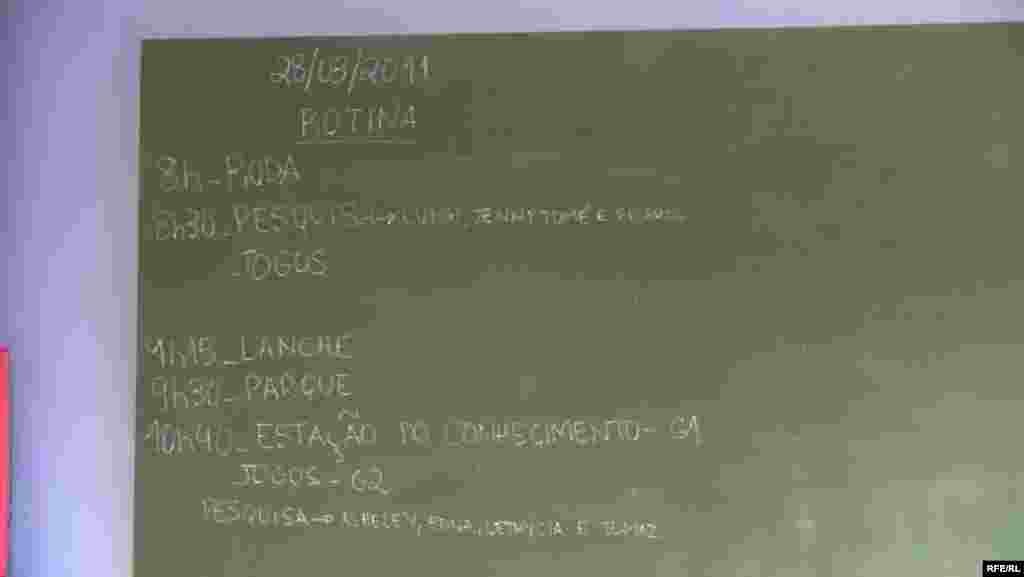 28/03/2011
ROTINA
8h - RODA
8h30 - PESQUISA → JENNY, TOMÉ E
- JOGOS
9h15 - LANCHE
9h30 - PARQUE
10h40 - ESTAÇÃO DO CONHECIMENTO - G1
JOGOS - G2
PESQUISA → E
RFE/RL